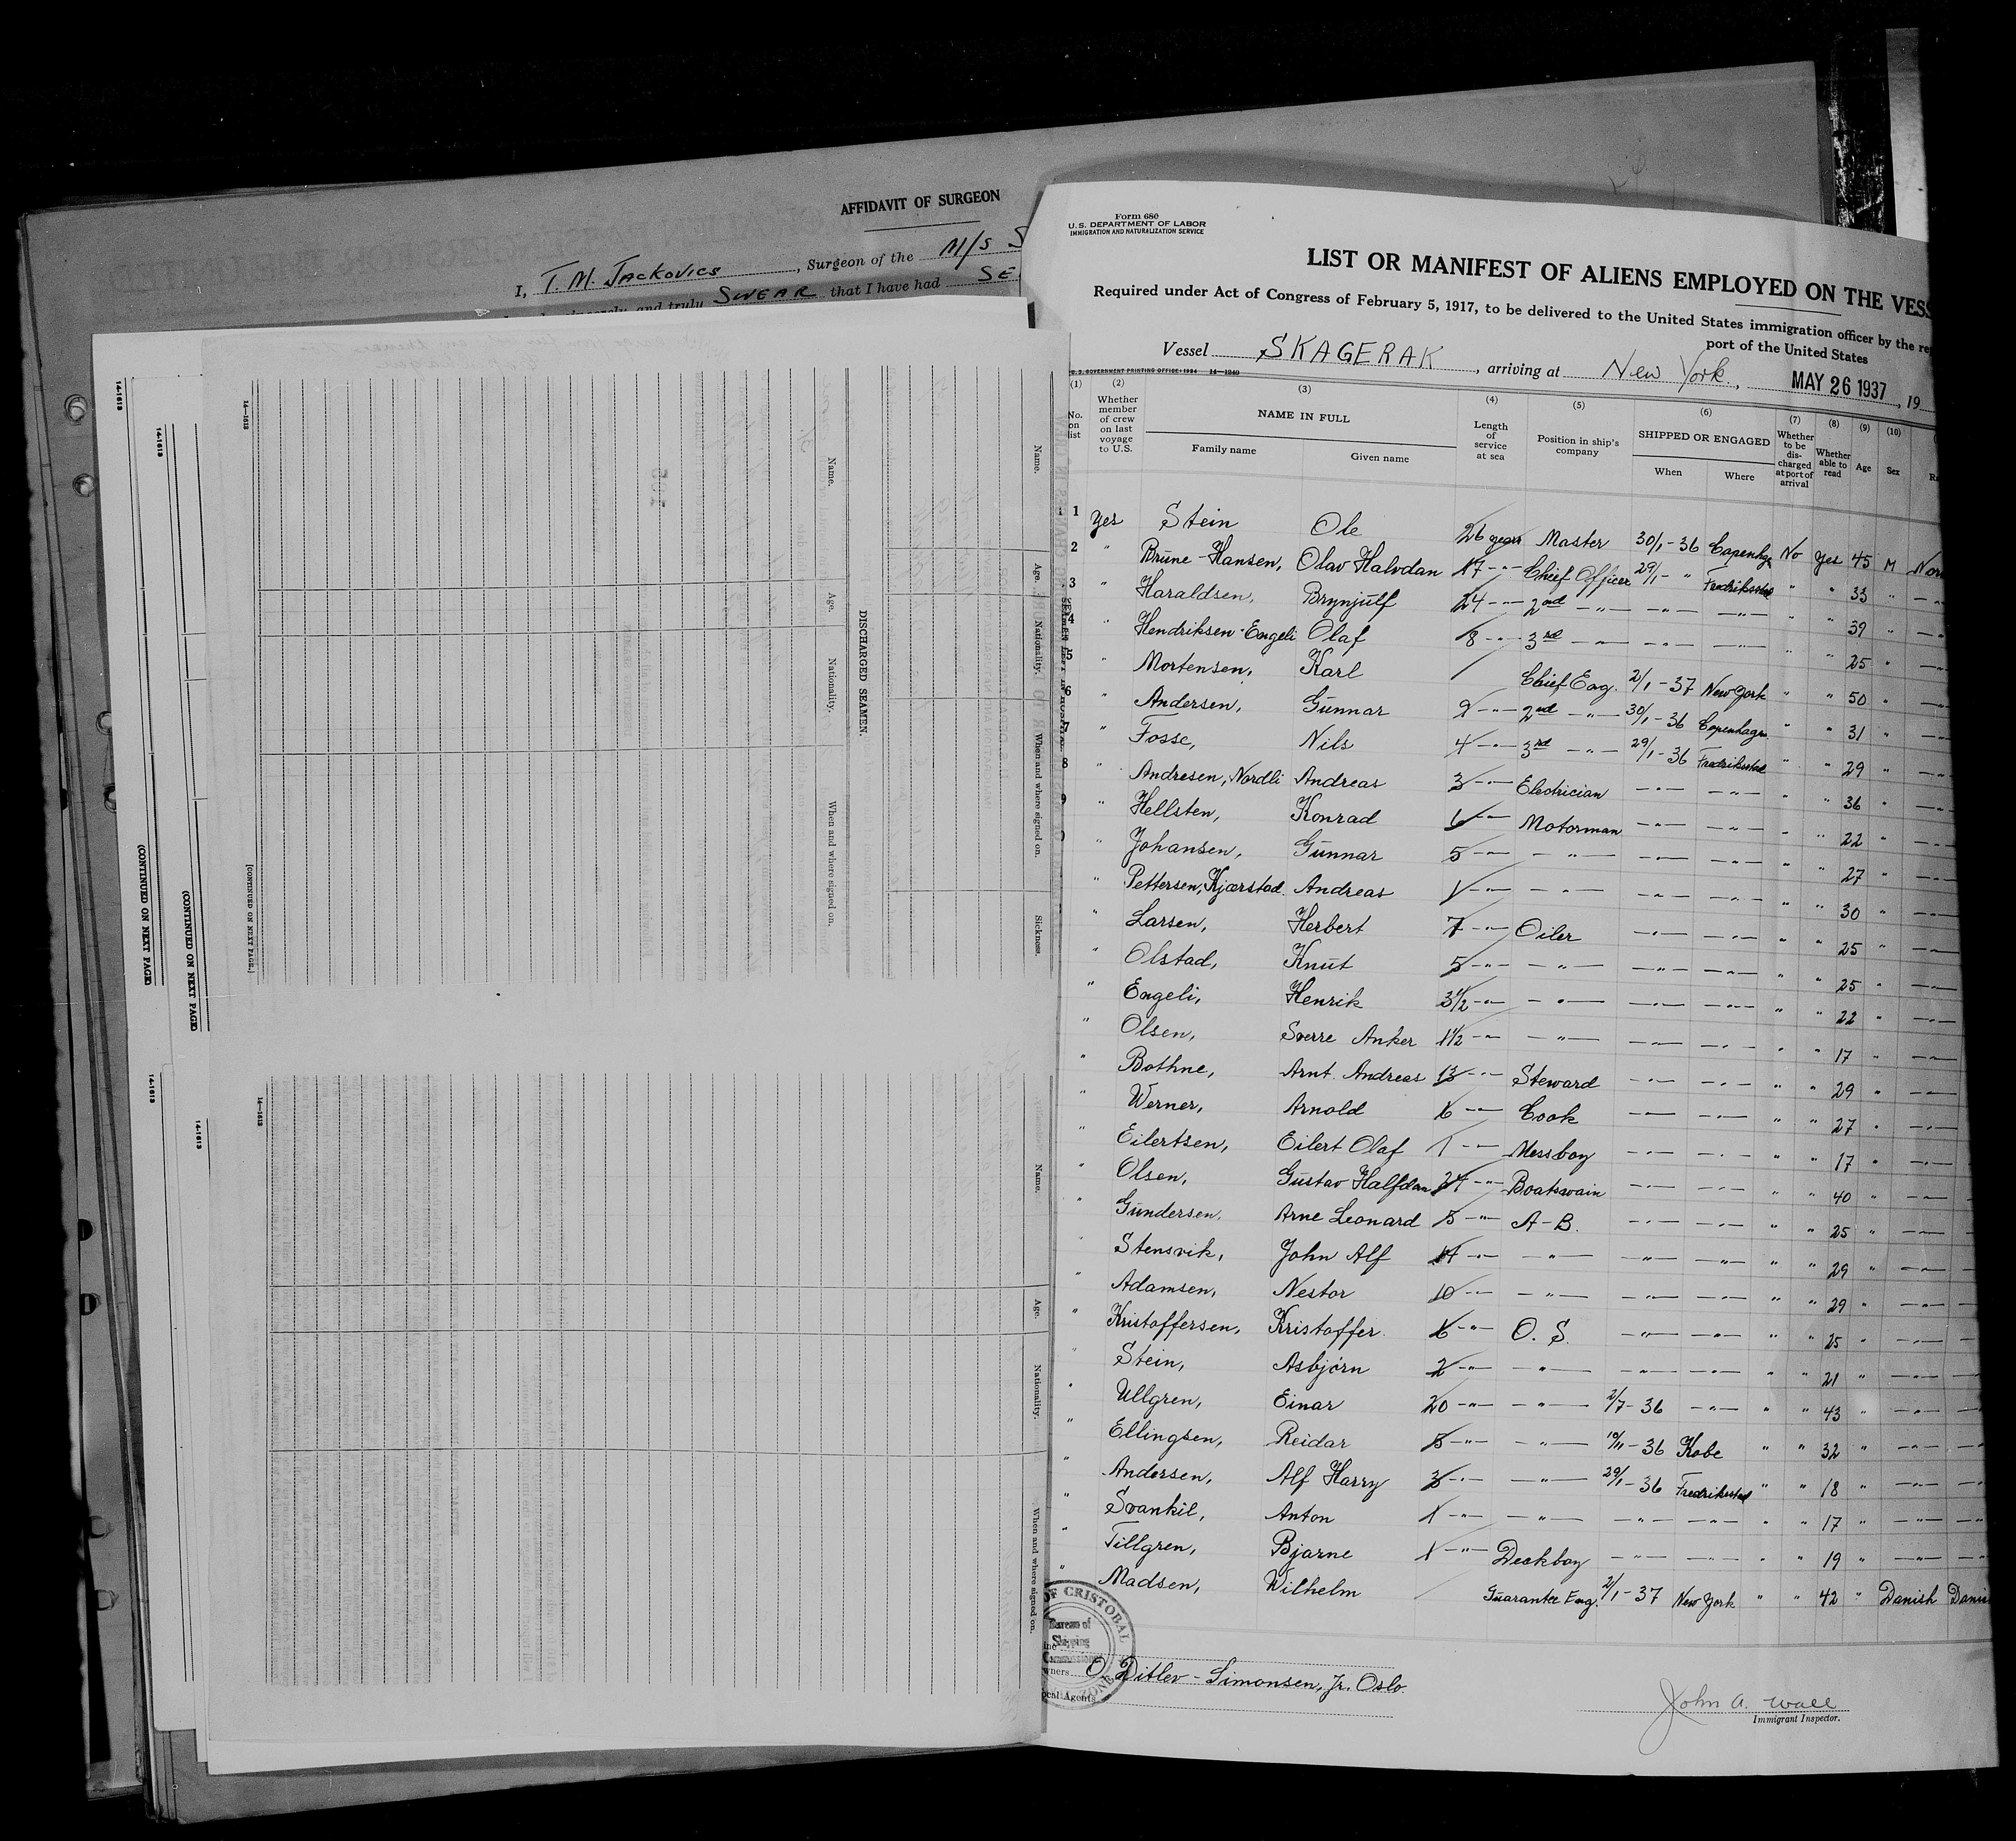 AFFIDAVIT OF SURGEON
I, T. M. Jackovics, Surgeon of the M/S S
sincerely and truly SWEAR that I have had SE
14-1613
14-1613
(CONTINUED ON NEXT PAGE)
(CONTINUED ON NEXT PAGE)
14-1613
14-1613
14-1613
[CONTINUED ON NEXT PAGE.]
Name.
Age.
Nationality.
When and where signed on.
DISCHARGED SEAMEN.
Name.
Age.
Nationality.
When and where signed on.
Sickness.
14-1613
Name.
Age.
Nationality.
When and where signed on.
Form 680
U.S. DEPARTMENT OF LABOR
IMMIGRATION AND NATURALIZATION SERVICE
LIST OR MANIFEST OF ALIENS EMPLOYED ON THE VESS
Required under Act of Congress of February 5, 1917, to be delivered to the United States immigration officer by the re
port of the United States
Vessel SKAGERAK, arriving at New York, MAY 26 1937, 19
U. S. GOVERNMENT PRINTING OFFICE: 1934 14-1240
(1) (2) (3) (4) (5) (6) (7) (8) (9) (10)
No. on list
Whether member of crew on last voyage to U.S.
NAME IN FULL
Family name Given name
Length of service at sea
Position in ship's company
SHIPPED OR ENGAGED
When Where
Whether to be discharged at port of arrival
Whether able to read
Age
Sex
1 Yes Stein Ole 26 years Master 30/1-36 Copenhgn No Yes 45 M Nor
2 " Brune-Hansen, Olav Halvdan 17 -"- Chief Officer 29/1- " Fredriksstad " " 33 " -"-
3 " Haraldsen, Brynjulf 24 -"- 2nd -"- -"- -"- " " 39 " -"-
4 " Hendriksen-Engeli Olaf 8 -"- 3rd -"- -"- -"- " " 25 " -"-
5 " Mortensen, Karl Chief Eng. 2/1-37 New York " " 50 " -"-
6 " Andersen, Gunnar 9 -"- 2nd -"- 30/1-36 Copenhagn " " 31 " -"-
7 " Fosse, Nils 4 -"- 3rd -"- 29/1-36 Fredriksstad " " 29 " -"-
8 " Andresen, Nordli Andreas 3 -"- Electrician -"- -"- " " 36 " -"-
9 " Hellsten, Konrad 6 -"- Motorman -"- -"- " " 22 " -"-
" Johansen, Gunnar 5 -"- -"- -"- -"- " " 27 " -"-
" Pettersen, Kjærstad. Andreas 1 -"- -"- -"- -"- " " 30 " -"-
" Larsen, Herbert 7 -"- Oiler -"- -"- " " 25 " -"-
" Olstad, Knut 5 -"- -"- -"- -"- " " 25 " -"-
" Engeli, Henrik 3 1/2 -"- -"- -"- -"- " " 22 " -"-
" Olsen, Sverre Anker 1 1/2 -"- -"- -"- -"- " " 17 " -"-
" Bothne, Arnt Andreas 13 -"- Steward -"- -"- " " 29 " -"-
" Werner, Arnold 6 -"- Cook -"- -"- " " 27 " -"-
" Eilertsen, Eilert Olaf 1 -"- Messboy -"- -"- " " 17 " -"-
" Olsen, Gustav Halfdan 24 -"- Boatswain -"- -"- " " 40 " -"-
" Gundersen. Arne Leonard 5 -"- A-B. -"- -"- " " 25 " -"-
" Stensvik, John Alf 14 -"- -"- -"- -"- " " 29 " -"-
" Adamsen, Nestor 10 -"- -"- -"- -"- " " 29 " -"-
" Kristoffersen, Kristoffer. 6 -"- O. S. -"- -"- " " 25 " -"-
" Stein, Asbjørn 2 -"- -"- -"- -"- " " 21 " -"-
" Ullgren, Einar 20 -"- -"- 2/7-36 -"- " " 43 " -"-
" Ellingsen, Reidar 5 -"- -"- 10/11-36 Kobe " " 32 " -"-
" Andersen, Alf Harry 3 -"- -"- 29/1-36 Fredriksstad " " 18 " -"-
" Svankil, Anton 1 -"- -"- -"- -"- " " 17 " -"-
" Tillgren, Bjarne 1 -"- Deckboy -"- -"- " " 19 " -"-
" Madsen, Wilhelm Guarantee Eng. 2/1-37 New York " " 42 " Danish Danis
OF CRISTOBAL
Bureau of
Shipping
ZONE
wners O. Ditlev-Simonsen, Jr. Oslo.
ocal Agents
John A. Wall
Immigrant Inspector.